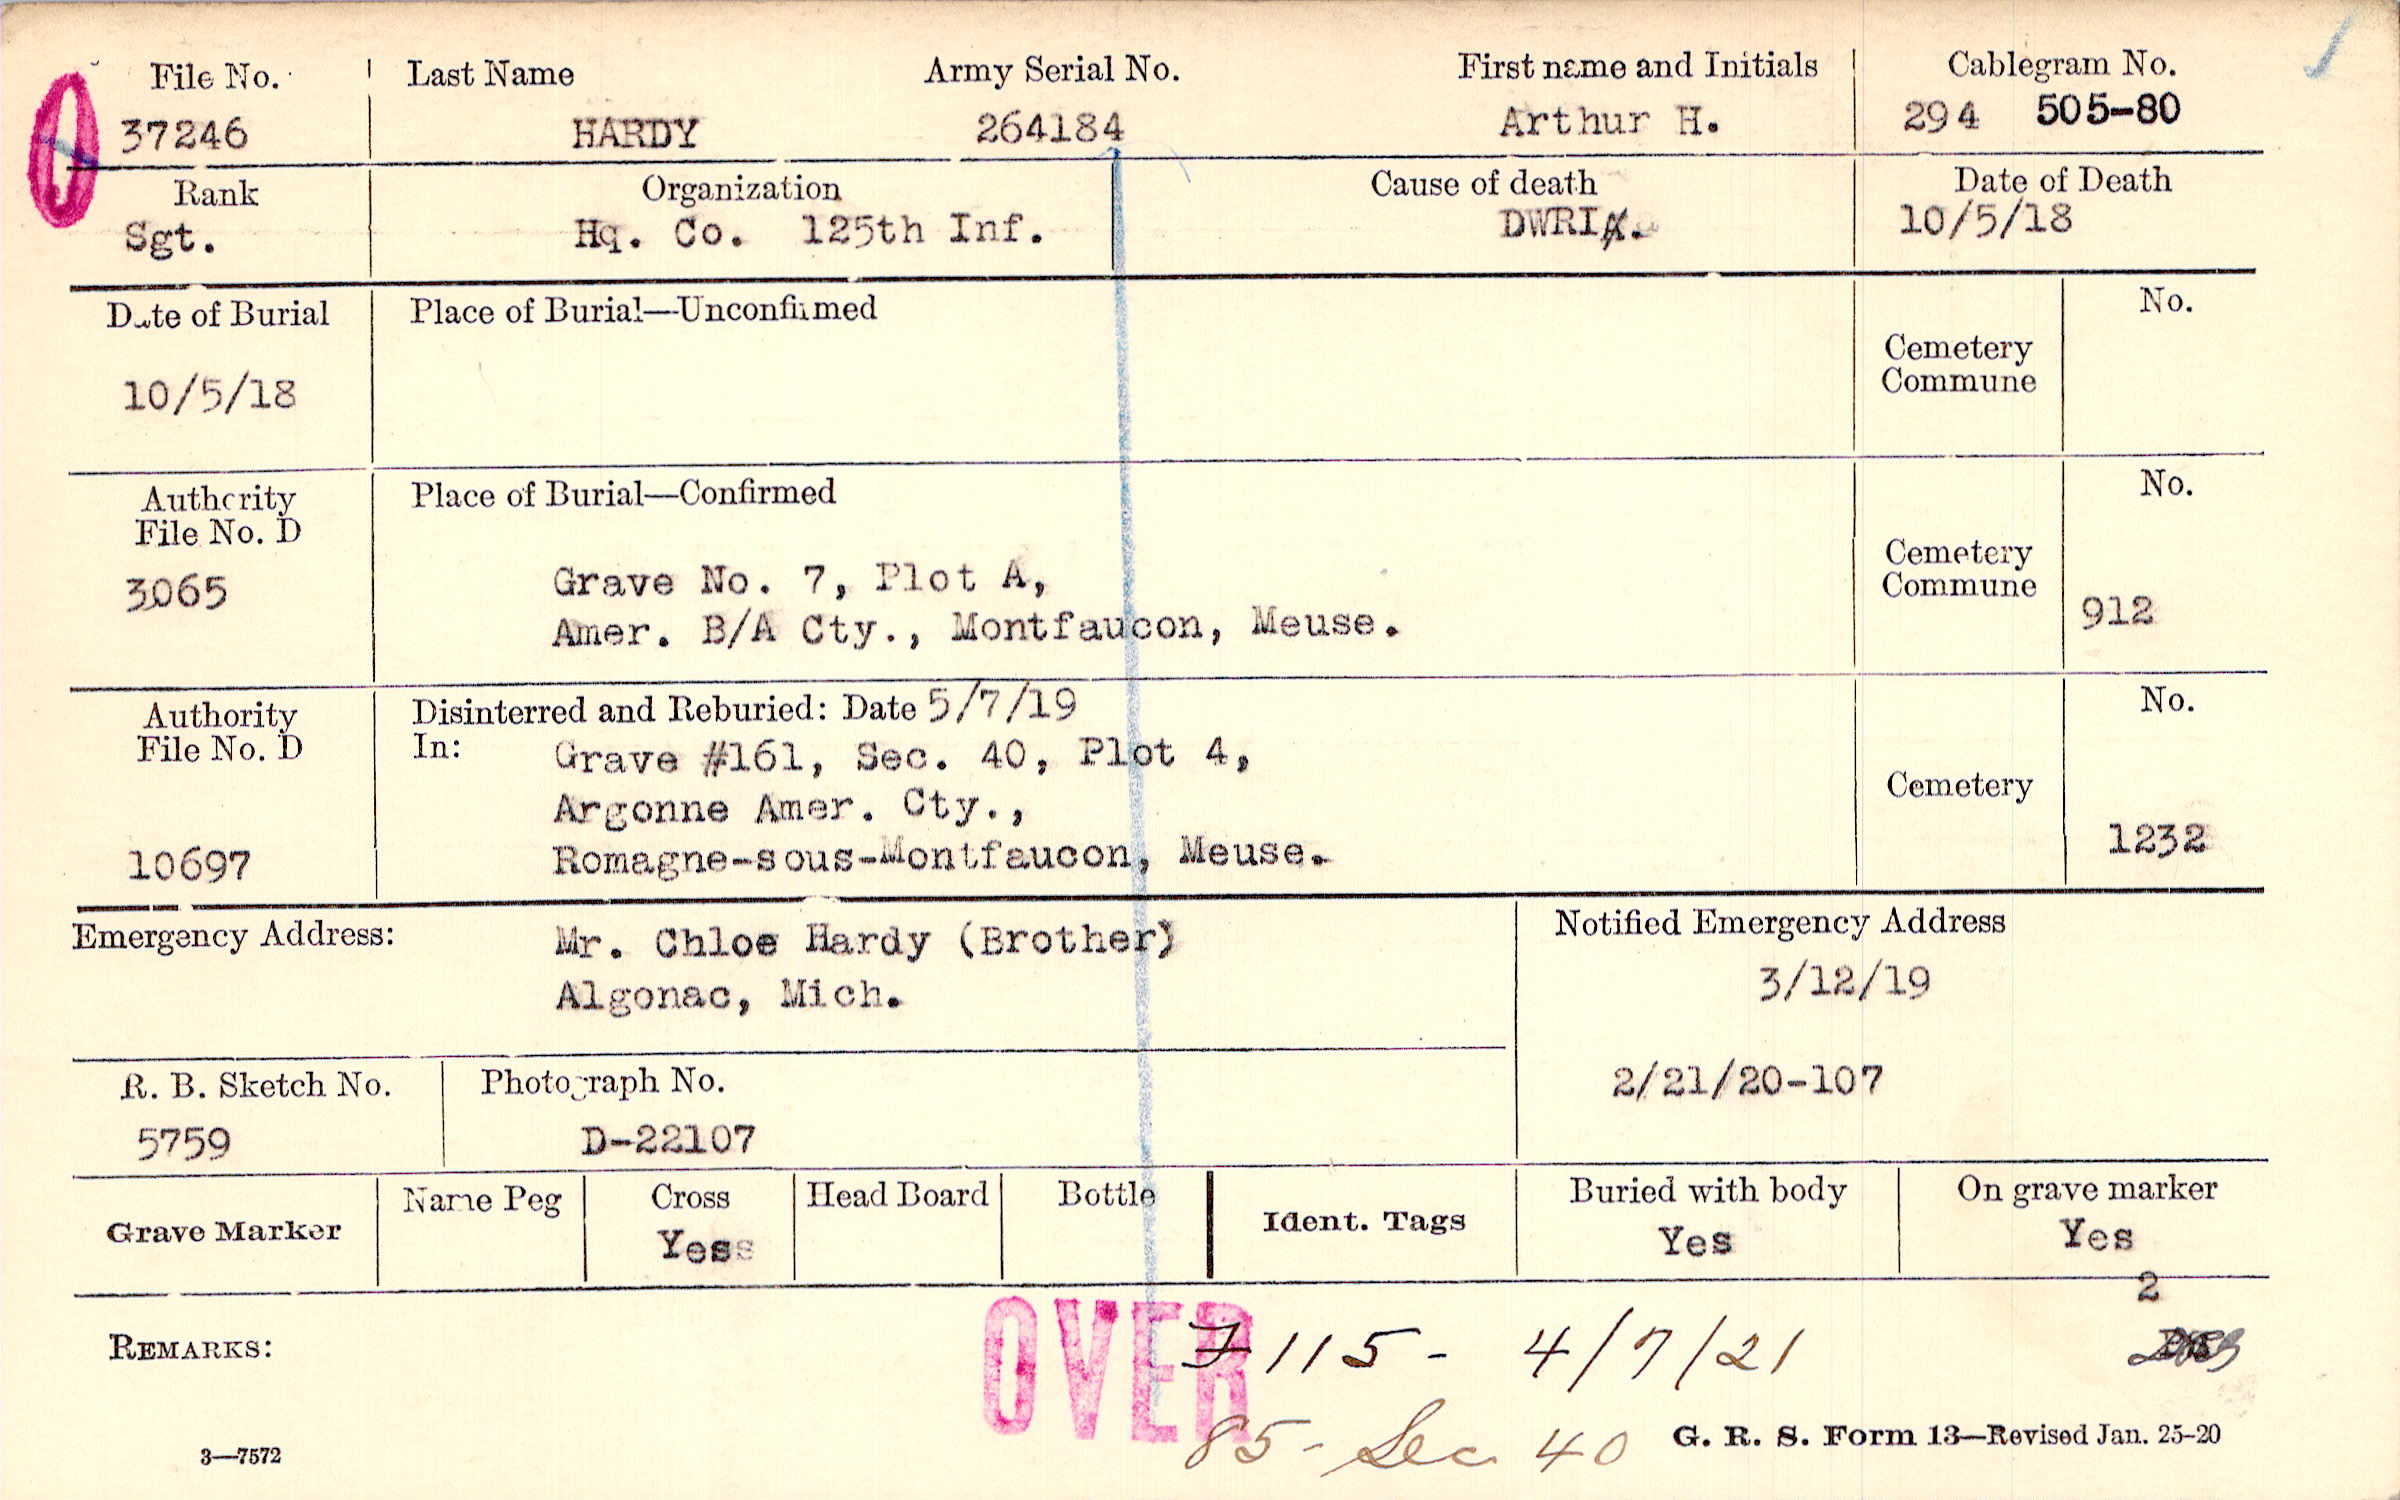 File No. Last Name Army Serial No. First name and Initials Cablegram No.
37246 HARDY 264184 Arthur H. 294 505-80
Rank Organization Cause of death Date of Death
Sgt. Hq. Co. 125th Inf. DWRI 10/5/18
Date of Burial Place of Burial—Unconfirmed No.
Cemetery
Commune
10/5/18
Authority Place of Burial—Confirmed No.
File No. D
Cemetery
Commune
3065 Grave No. 7, Plot A, 912
Amer. B/A Cty., Montfaucon, Meuse.
Authority Disinterred and Reburied: Date 5/7/19 No.
File No. D In: Grave #161, Sec. 40, Plot 4,
Cemetery
Argonne Amer. Cty.,
10697 Romagne-sous-Montfaucon, Meuse. 1232
Emergency Address: Mr. Chloe Hardy (Brother) Notified Emergency Address
Algonac, Mich. 3/12/19
R. B. Sketch No. Photograph No. 2/21/20-107
5759 D-22107
Grave Marker Name Peg Cross Head Board Bottle Ident. Tags Buried with body On grave marker
Yes Yes Yes
2
REMARKS: OVER 115 - 4/7/21
85 - Sec 40
3—7572 G. R. S. Form 13—Revised Jan. 25-20